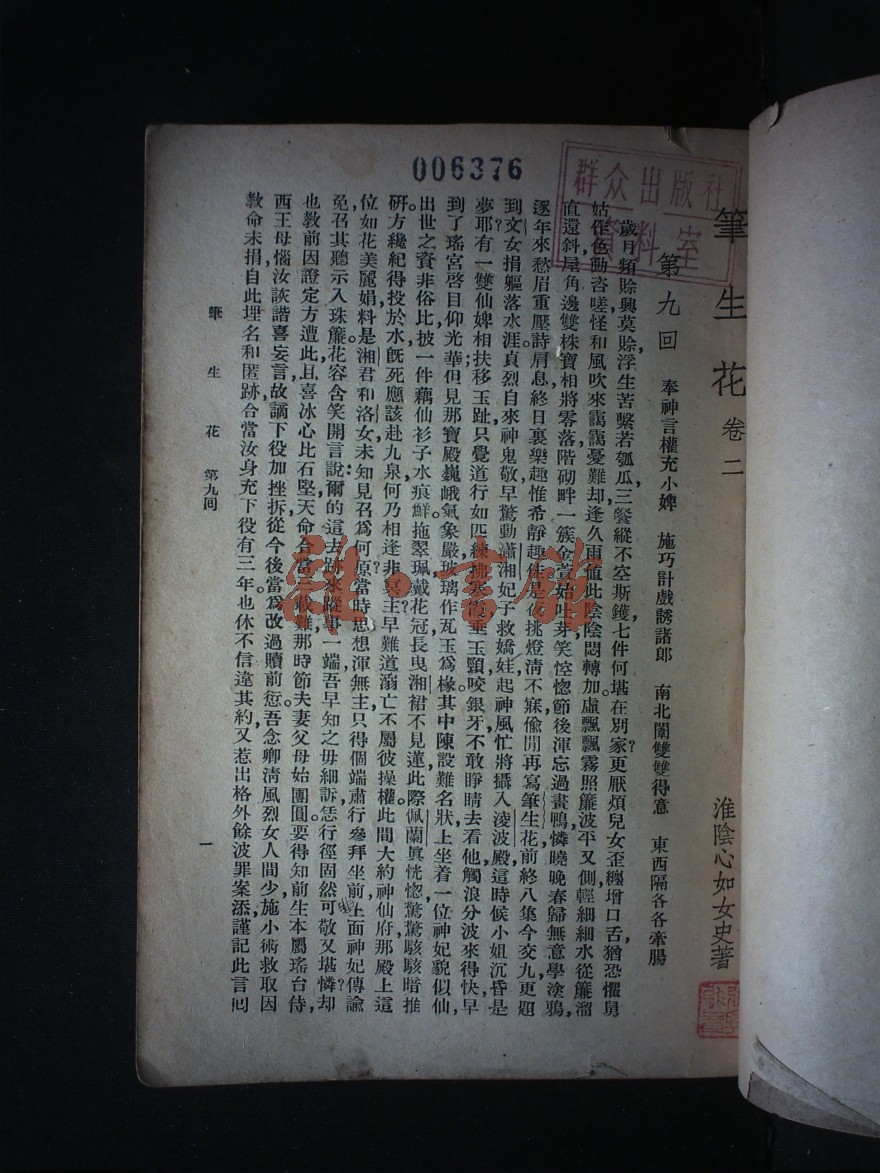 006376
群众出版社
資料室
筆生花 卷二
淮陰心如女史著
第九回 奉神言權充小婢 施巧計戲誘諸郎 南北闈雙雙得意 東西隔各各牽腸
歲月頻賒興莫賒,浮生苦繫若瓠瓜,三餐縱不空斯鑊,七件何堪在別家?更厭煩兒女歪纏增口舌,猶恐懼舅
姑作色動咨嗟,怪和風吹來靄靄憂難却,逢久雨值此陰陰悶轉加。虛飄飄霧照簾波平又側,輕細細水從簷溜
直還斜,屋角邊雙株寶相將零落,階砌畔一簇金萱始吐芽,笑悾惚節後渾忘過畫鴨,憐曉晚春歸無意學塗鴉,
逐年來愁眉重壓詩肩息,終日裏樂趣惟希靜趣佳。是以挑燈清不寐,偷閒再寫筆生花,前終八集今交九,更題
到文女捐軀落水涯,貞烈自來神鬼敬,早驚動瀟湘妃子救嬌娃,起神風忙將攝入淩波殿,這時候小姐沉昏是
夢耶?有一雙仙婢相扶移玉趾,只覺道行如匹練
垂玉頸,咬銀牙,不敢睜睛去看他,觸浪分波來得快,早
到了瑤宮啓目仰光華,但見那寶殿巍峨氣象嚴,玻璃作瓦玉為椽。其中陳設難名狀,上坐着一位神妃貌似仙,
出世之資非俗比,披一件藕仙衫子水痕鮮,拖翠珮,戴花冠,長曳湘裙不見蓮,此際佩蘭眞恍惚,驚驚駭駭暗推
研。方纔紀得投於水,旣死應該赴九泉,何乃相逢非冥主?早難道溺亡不屬彼操權。此間大約神仙府,那殿上這
位如花美麗娟,料是湘君和洛女,未知見召為何原?當時思想渾無主,只得個端肅行參拜坐前。上面神妃傳諭
免,召其聽示入珠簾,花容含笑開言說:爾的這去跡來蹤事一端,吾早知之毋細訴,恁行徑固然可敬又堪憐?却
也教前因證定方遭此,且喜冰心比石堅,天命合當三載難,那時節夫妻父母始團圓。要得知前生本屬瑤台侍,
西王母惱汝詼諧喜妄言,故謫下役加挫折,從今後當為改過贖前愆。吾念卿清風烈女人間少,施小術救取因
教命未捐,自此埋名和匿跡,合當汝身充下役有三年也,休不信違其約,又惹出格外餘波罪案添,謹記此言回
筆生花 第九回 一